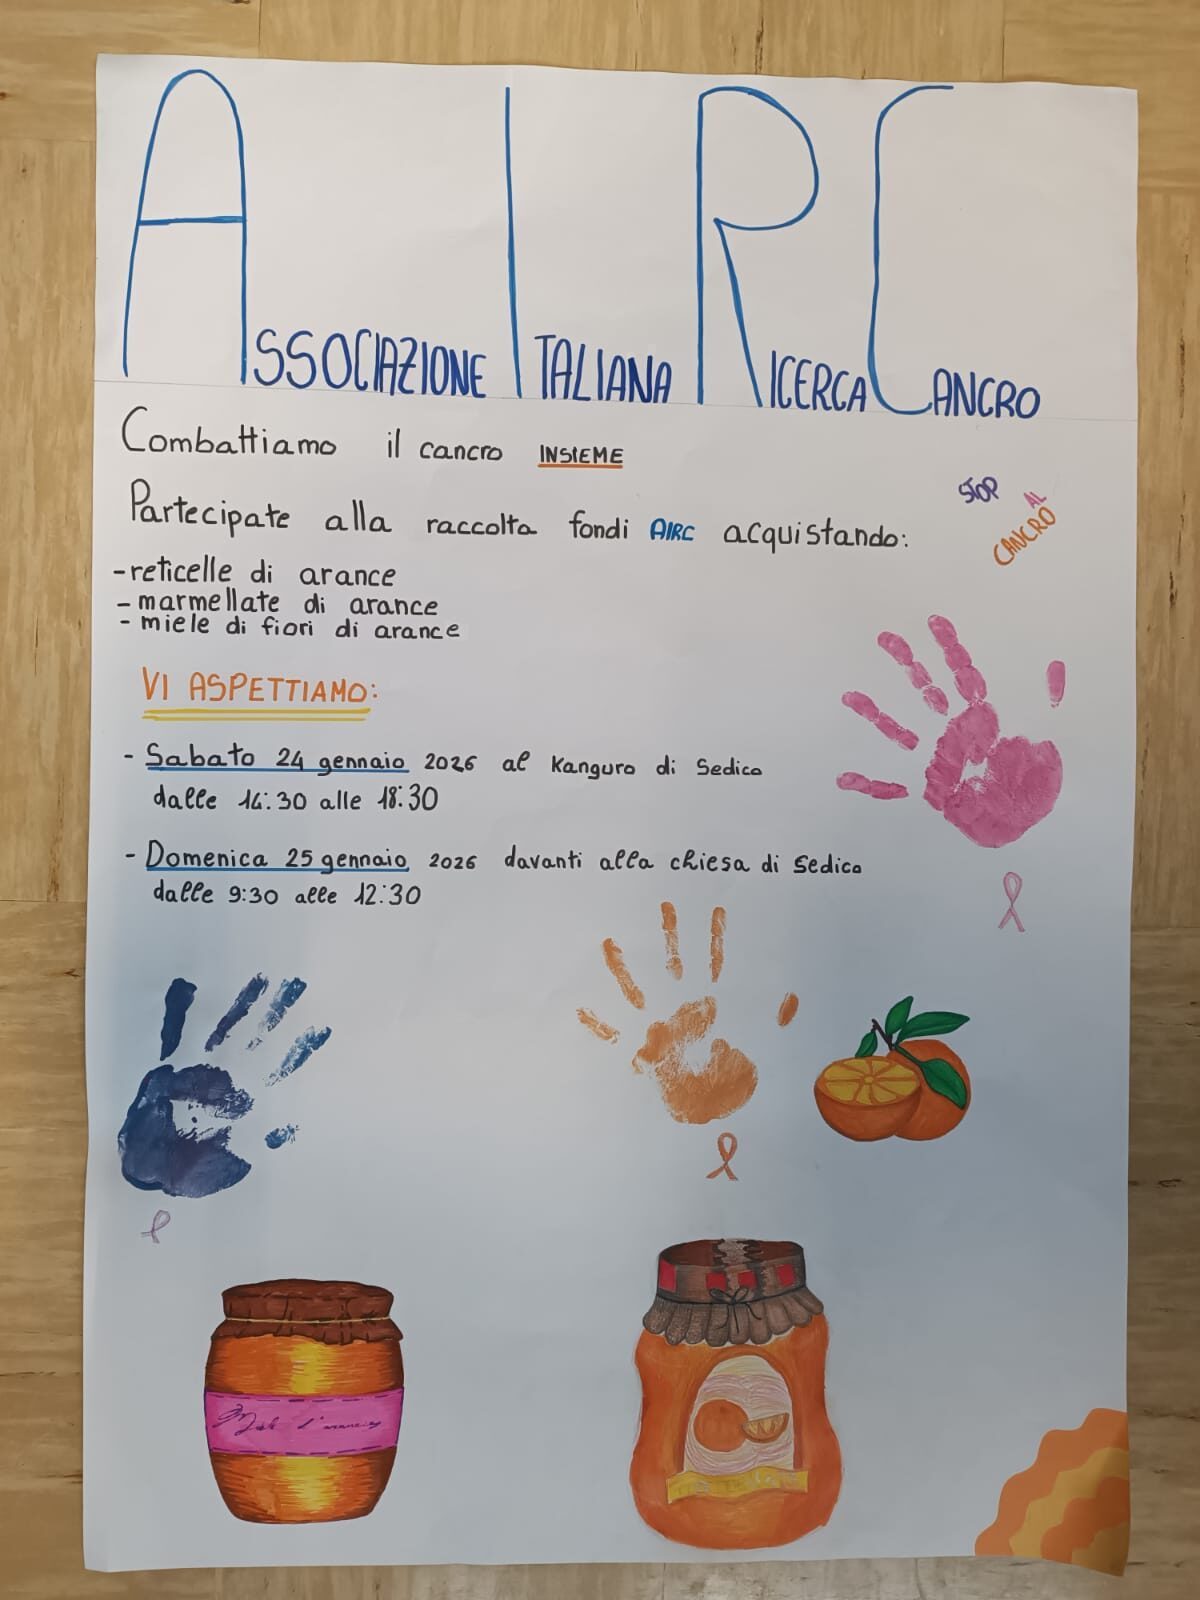 ASSOCIAZIONE ITALIANA RICERCA CANCRO
Combattiamo il cancro INSIEME
Partecipate alla raccolta fondi AIRC acquistando:
STOP
AL
CANCRO
-reticelle di arance
- marmellate di arance
- miele di fiori di arance
VI ASPETTIAMO:
- Sabato 24 gennaio 2026 al Kanguro di Sedico
dalle 14:30 alle 18:30
- Domenica 25 gennaio 2026 davanti alla chiesa di Sedico
dalle 9:30 alle 12:30